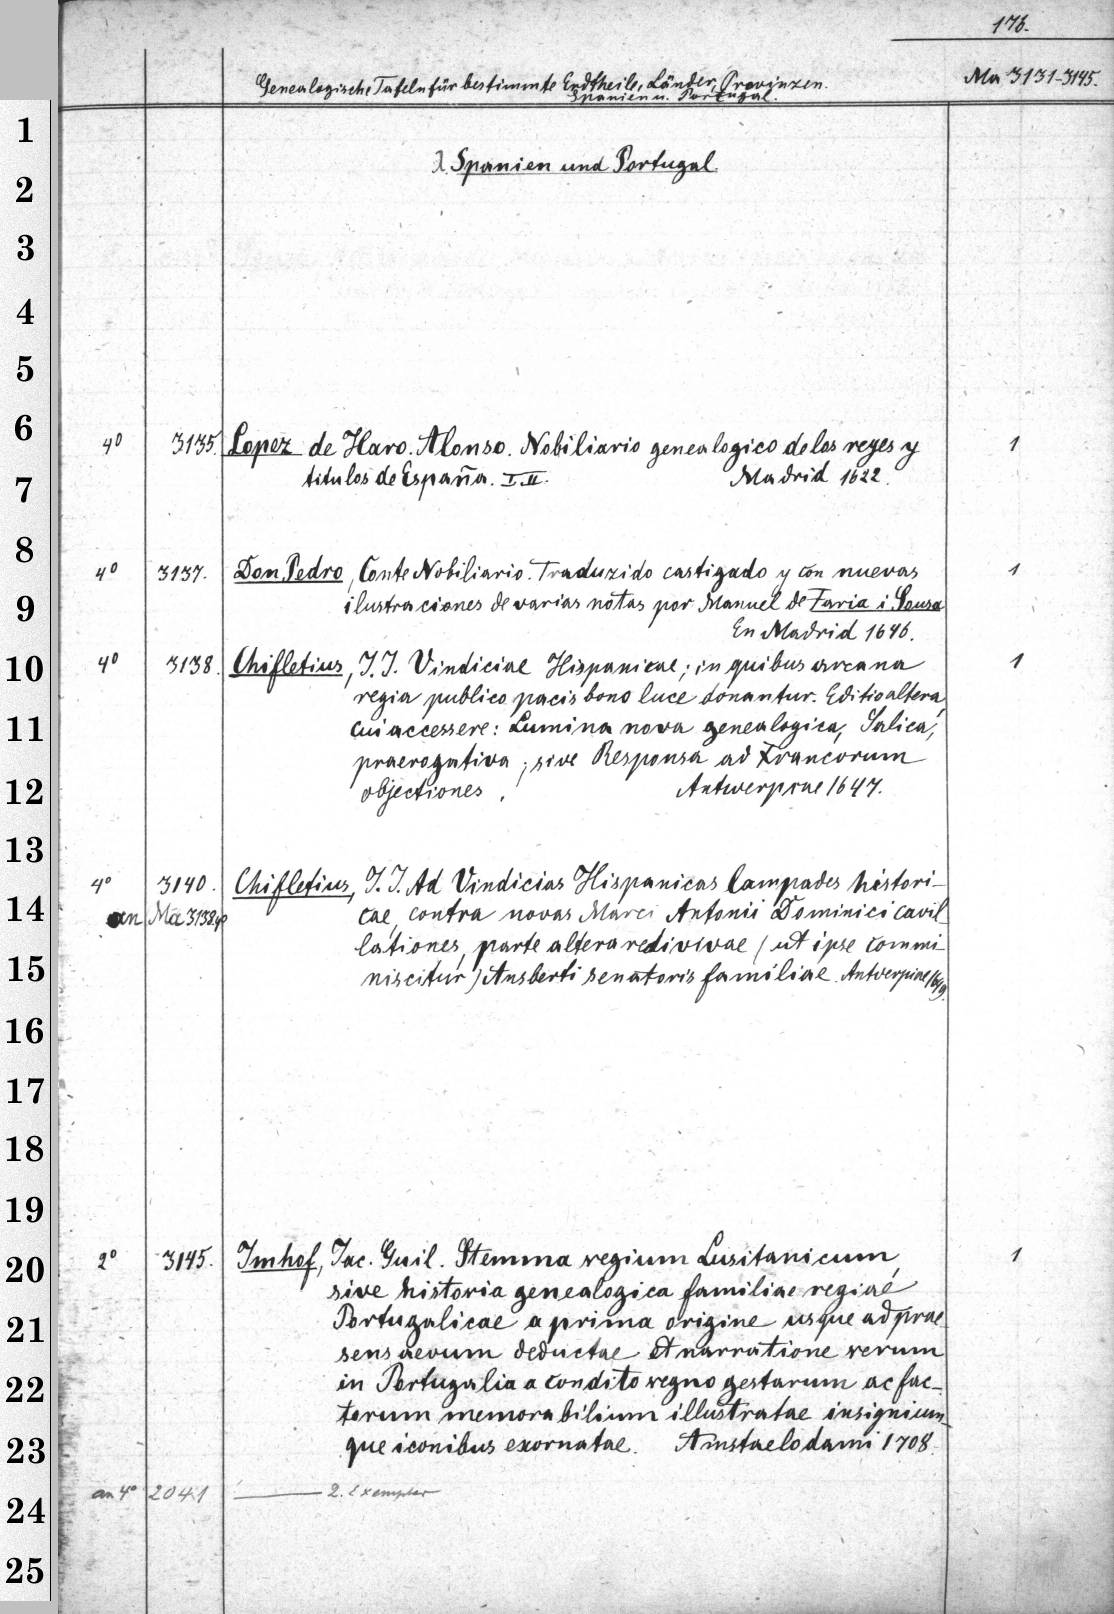 176.
Genealogische Tafeln für bestimmte Erdtheile, Länder, Provinzen. Ma 3131-3145.
Spanien u. Portugal.
1
λ. Spanien und Portugal.
2
3
4
5
6
4° 3135. Lopez de Haro. Alonso. Nobiliario genealogico de los reyes y 1
7
titulos de España. I. II. Madrid 1622.
8
4° 3137. Don Pedro, Conte Nobiliario. Traduzido castigado y con nuevas 1
9
ilustraciones de varias notas por Manuel de Faria i Sousa
En Madrid 1646.
10
4° 3138. Chifletius, J. J. Vindiciae Hispanicae; in quibus arcana 1
regia publico pacis bono luce donantur. Editio altera,
11
cui accessere: Lumina nova genealogica, Salica,
praerogativa; sive Responsa ad Francorum
12
objectiones. Antwerpiae 1647.
13
4° 3140. Chifletius, J. J. Ad Vindicias Hispanicas lampades histori-
14
an Ma 3138 4° cae, contra novas Marci Antonii Dominici cavil-
lationes, parte altera redivivae (ut ipse commi-
15
niscitur) Ansberti senatoris familiae. Antverpiae 1649.
16
17
18
19
20
2° 3145. Imhof, Jac. Guil. Stemma regium Lusitanicum, 1
sive historia genealogica familiae regiae
21
Portugalicae a prima origine usque ad prae-
sens aevum deductae et narratione rerum
22
in Portugalia a condito regno gestarum ac fac-
torum memorabilium illustratae insignium-
23
que iconibus exornatae. Amstaelodami 1708.
24
an 4° 2041 ——— 2. Exemplar
25